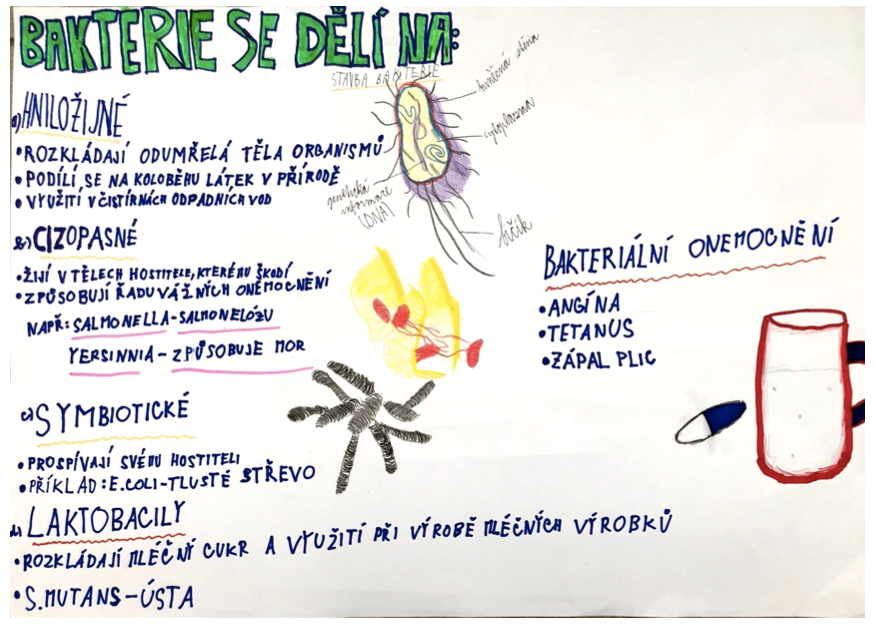 BAKTERIE SE DĚLÍ NA:
STAVBA BAKTERIE
buněčná stěna
cytoplazma
genetická
informace
(DNA)
bičík
a) HNILOŽIJNÉ
• ROZKLÁDAJÍ ODUMŘELÁ TĚLA ORGANISMŮ
• PODÍLÍ SE NA KOLOBĚHU LÁTEK V PŘÍRODĚ
• VYUŽITÍ V ČISTÍRNÁCH ODPADNÍCH VOD
b) CIZOPASNÉ
• ŽIJÍ V TĚLECH HOSTITELE, KTERÉMU ŠKODÍ
• ZPŮSOBUJÍ ŘADU VÁŽNÍCH ONEMOCNĚNÍ
NAPŘ: SALMONELLA - SALMONELÓZU
YERSINNIA - ZPŮSOBUJE MOR
c) SYMBIOTICKÉ
• PROSPÍVAJÍ SVÉMU HOSTITELI
• PŘÍKLAD: E.COLI - TLUSTÉ STŘEVO
d) LAKTOBACILY
• ROZKLÁDAJÍ MLÉČNÝ CUKR A VYUŽITÍ PŘI VÝROBĚ MLÉČNÝCH VÝROBKŮ
• S.MUTANS - ÚSTA
BAKTERIÁLNÍ ONEMOCNĚNÍ
• ANGÍNA
• TETANUS
• ZÁPAL PLIC